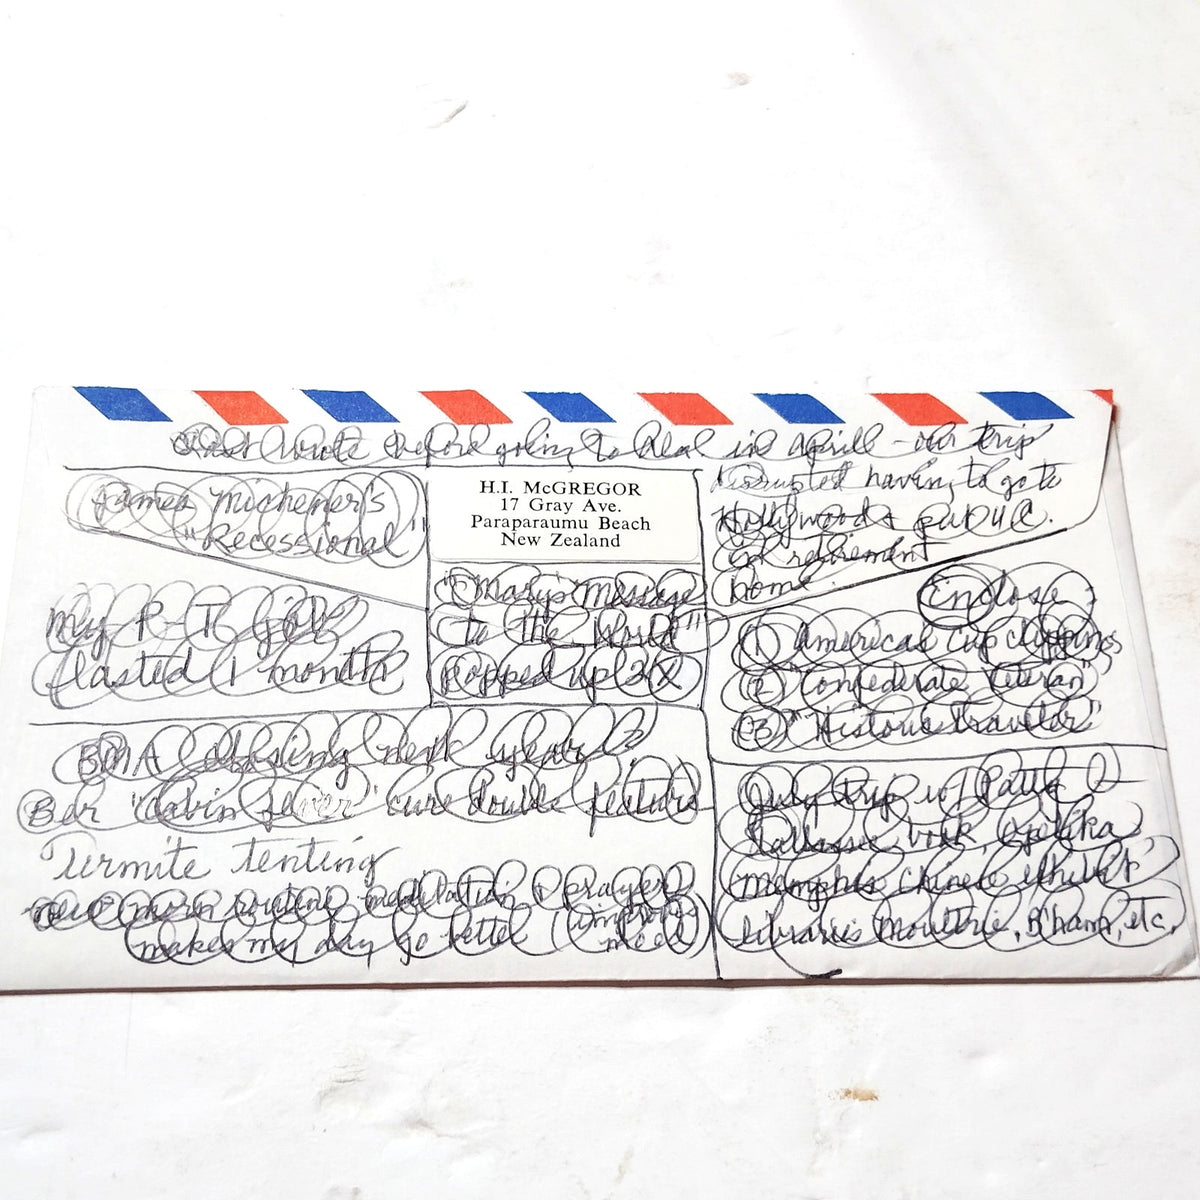 Last wrote before going to Deal in April - our trip
disrupted having to go to
Hollywood &
retirement
home.
James Michener's
"Recessional"
H.I. McGREGOR
17 Gray Ave.
Paraparaumu Beach
New Zealand
"Mary's Message
to the World"
popped up 2X
My P-T job
lasted 1 month
Enclose
(1) Americas Cup clippings
(2) "Confederate Veteran"
(3) "Historic Traveler"
BMA closing next year?
Bar "Cabin Fever" cure double feature
Termite tenting
more routine meditation & prayer
makes my day go better (improves
mood)
July trip w/ Patty
work, Opelika
Memphis Chinese exhibit
libraries Moultrie, B'ham, etc.